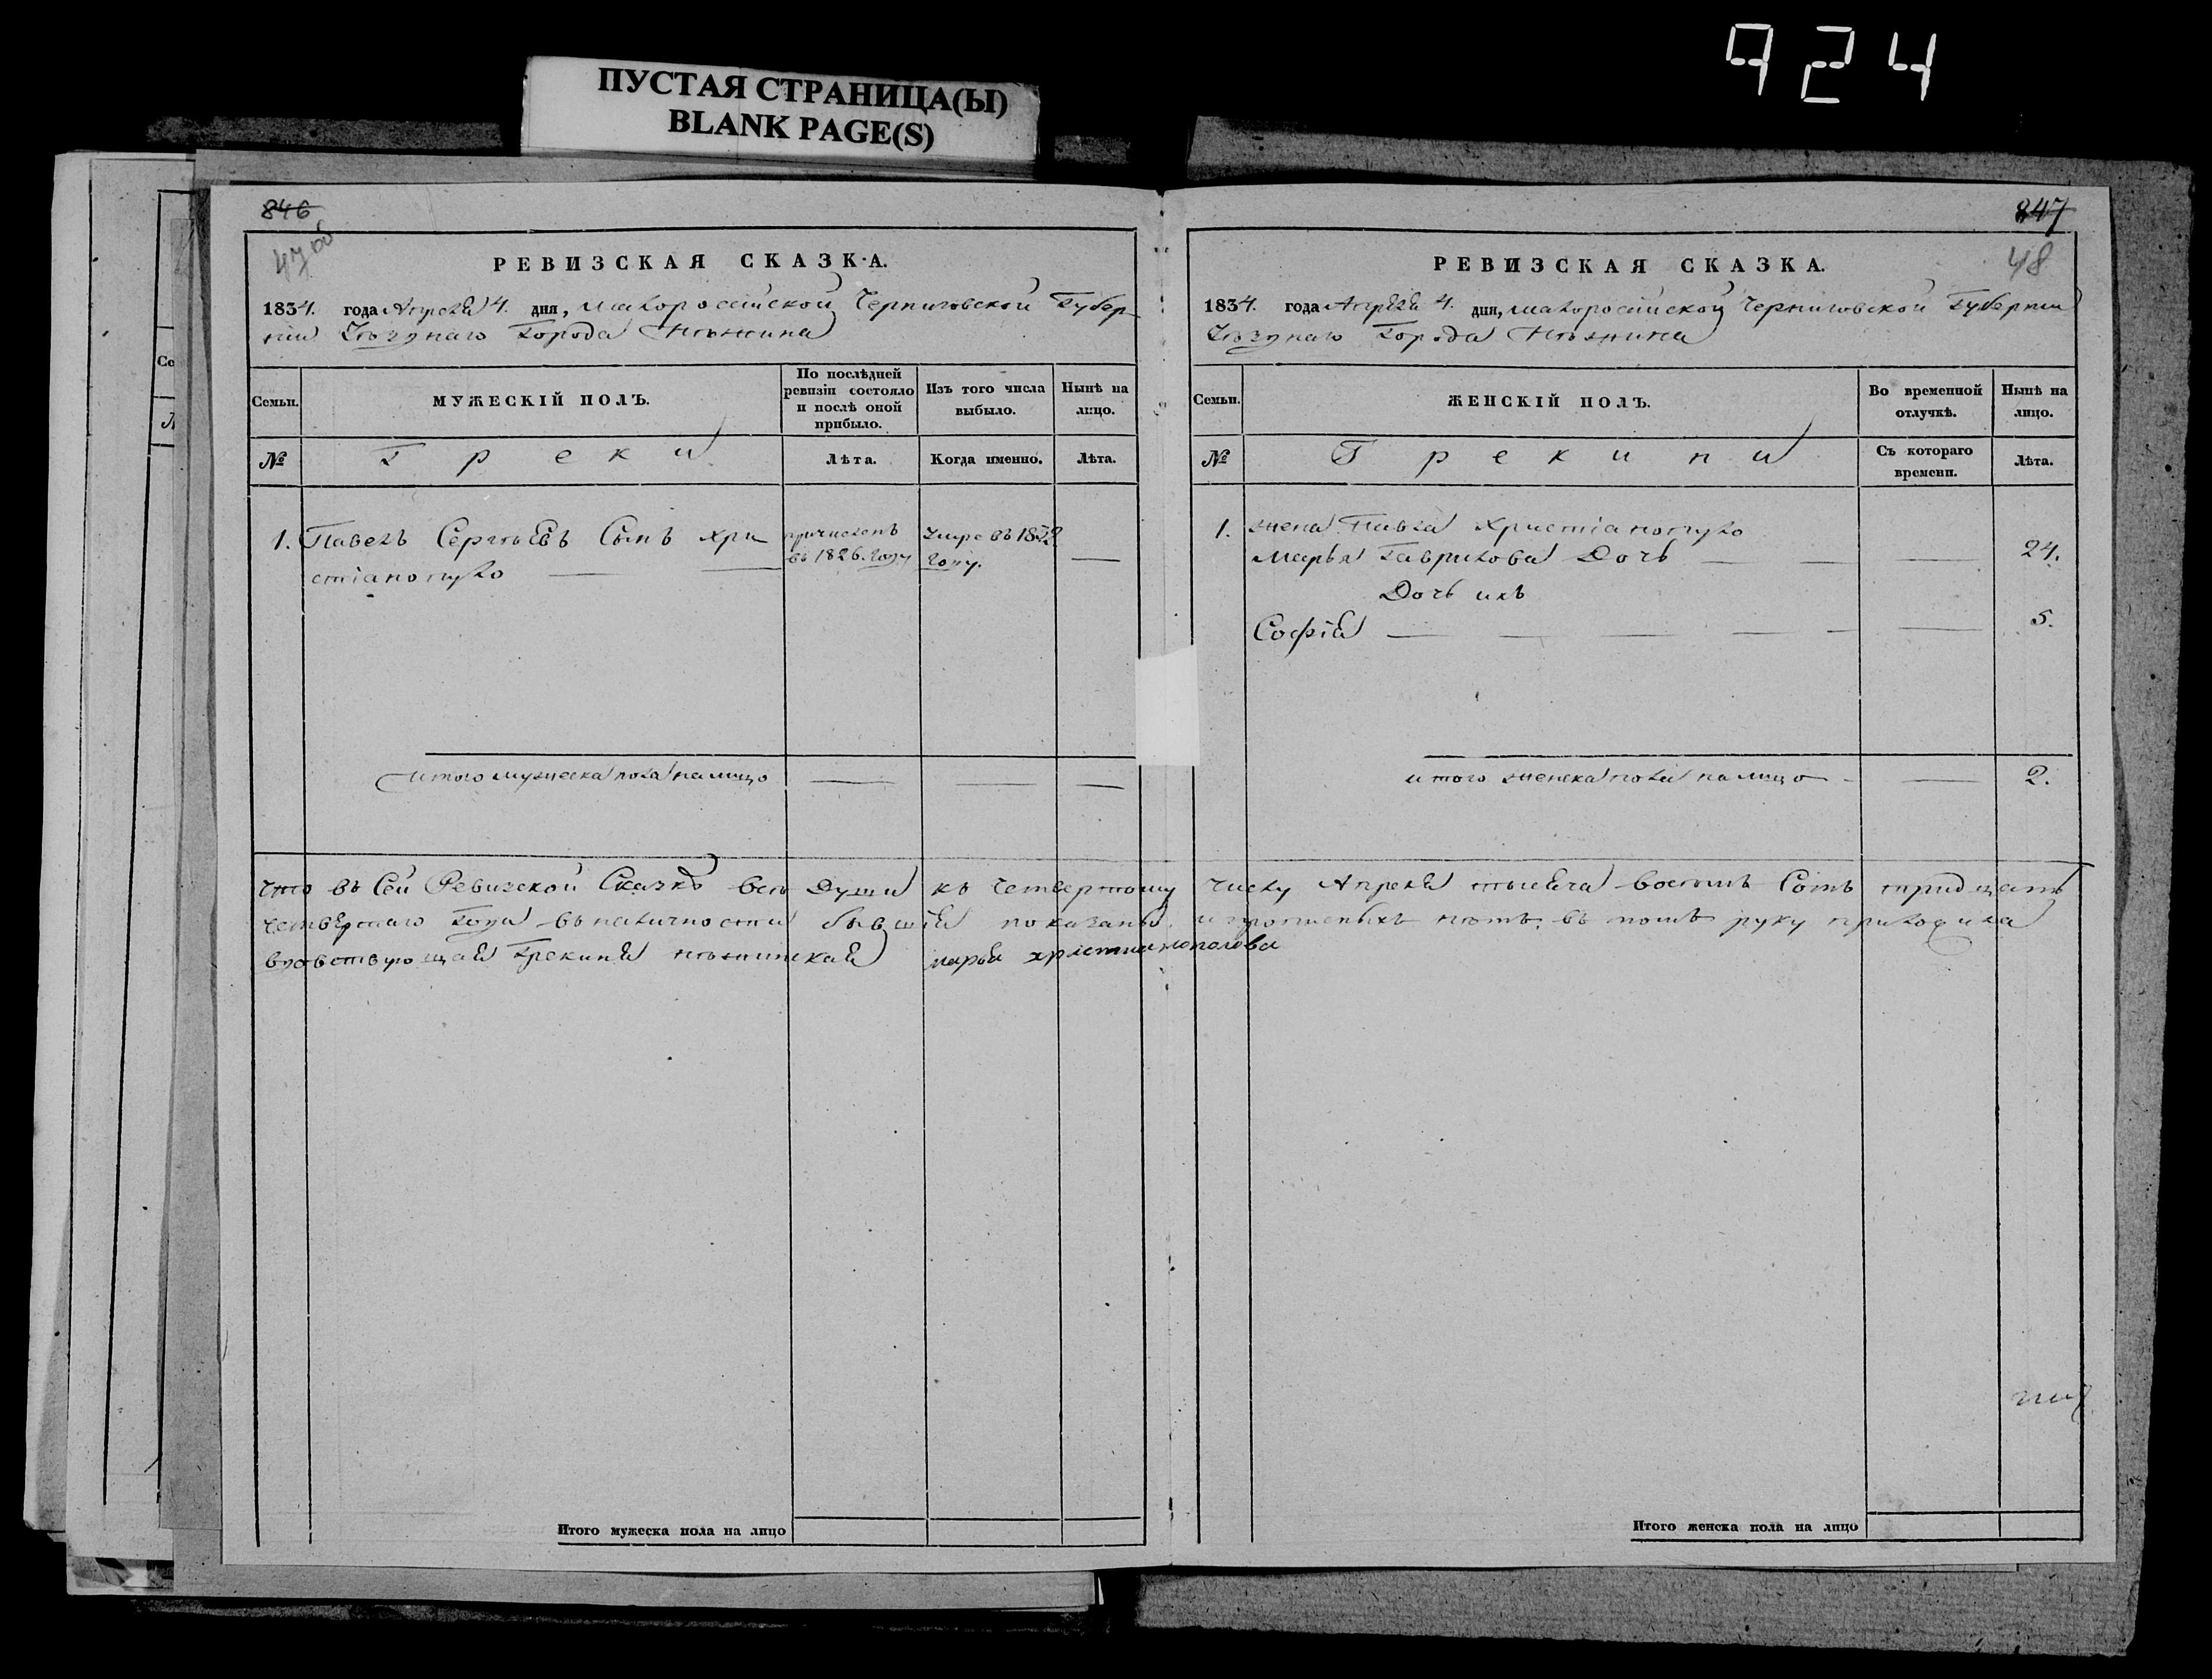 924
ПУСТАЯ СТРАНИЦА(Ы)
BLANK PAGE(S)
846
47 об
РЕВИЗСКАЯ СКАЗКА.
1834. года Апреля 4. дня, малоросcійской Черниговской Губер-
ніи Уѣзднаго Города Нѣжина
Семьи.
МУЖЕСКІЙ ПОЛЪ.
По послѣдней ревизіи состояло и послѣ оной прибыло.
Изъ того числа выбыло.
Нынѣ на лицо.
№
Греки
Лѣта.
Когда именно.
Лѣта.
1. Павелъ Сергѣевъ Сынъ Хри
стіанопуло
причисленъ
въ 1826. году
умре въ 1832
году.
—
итого мужеска пола на лицо — — —
847
48
РЕВИЗСКАЯ СКАЗКА.
1834. года Апреля 4. дня, малоросcійской Черниговской Губерніи
Уѣзднаго Города Нѣжина
Семьи.
ЖЕНСКІЙ ПОЛЪ.
Во временной отлучкѣ.
Нынѣ на лицо.
№
Грекини
Съ котораго времени.
Лѣта.
1. жена Павла Христіанопуло
Марья Гаврилова Дочь — — — 24.
Дочь ихъ
Софія — — — — — — 5.
итого женска пола на лицо — — 2.
Что въ Сей Ревизской Сказкѣ всѣ Души къ Четвертому числу Апреля тысяча восемь Сотъ тридцать
четвертаго Года въ наличности бывшія показаны. и прописныхъ нѣтъ. въ томъ руку приложила
вдовствующая Грекиня нѣжинская марья христианополова
Итого мужеска пола на лицо
Итого женска пола на лицо